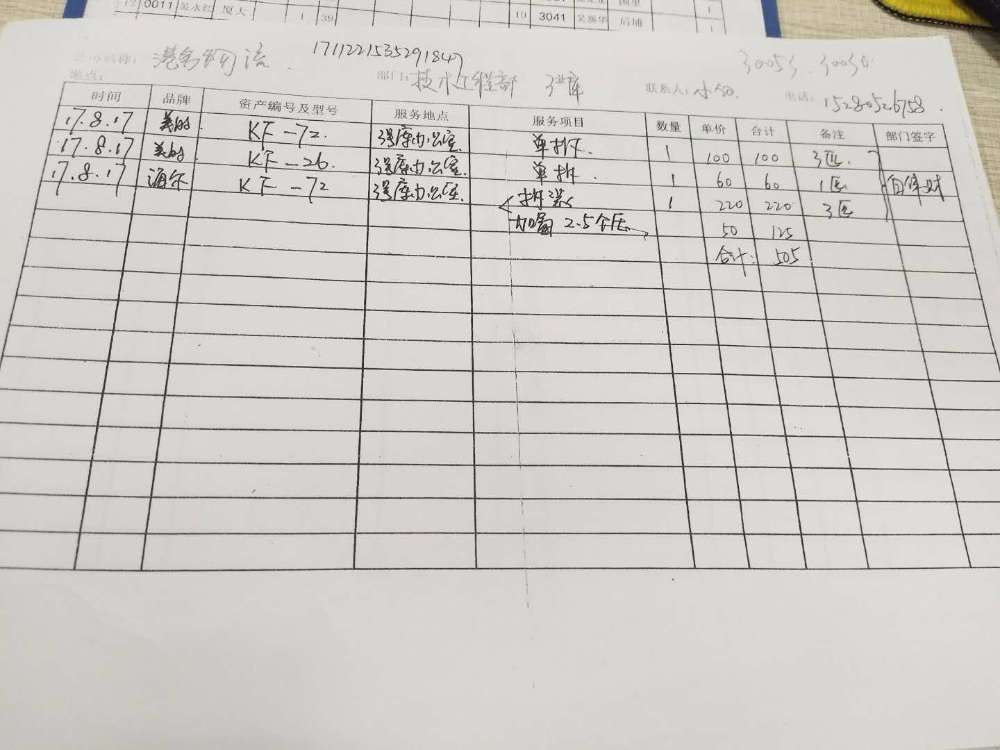 0011 吴永红 厦大 1 39
19 3041 后埔 1
1711221535291847
30053.30036
名称: 港务物流.
地点: 部门: 技术工程部 3#库 联系人: 电话: 15280526758.
时间 品牌 资产编号及型号 服务地点 服务项目 数量 单价 合计 备注 部门签字
17.8.17 美的 KF-72. 3#库办公室. 单拆. 1 100 100 3匹.
17.8.17 美的 KF-26. 3#库办公室 单拆. 1 60 60 1匹
17.8.17 海尔 KF-72 3#库办公室. 拆装 1 220 220 3匹
加氟 2.5个压 50 125
合计: 505